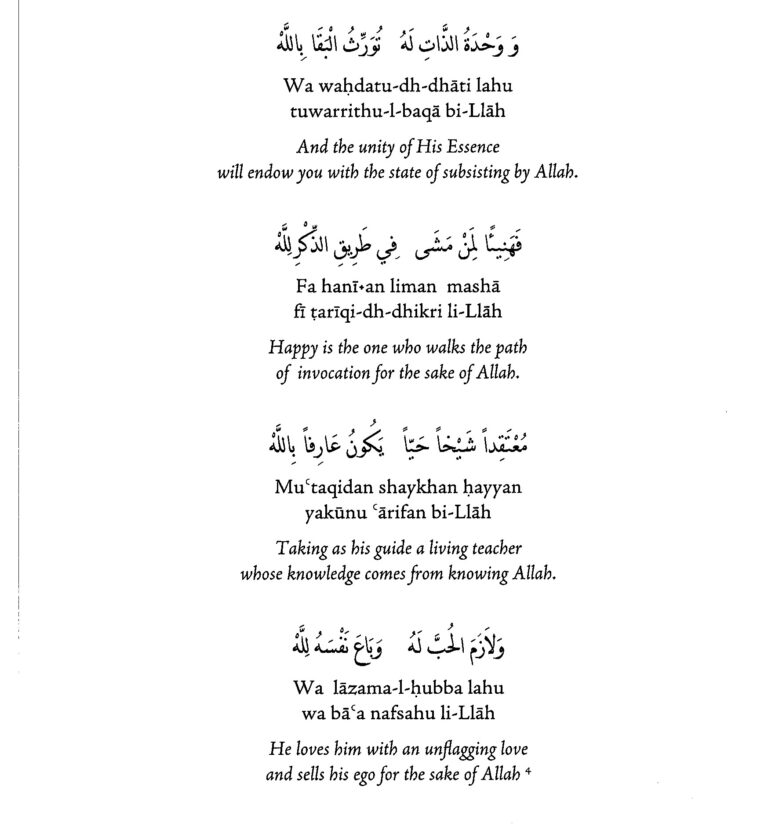 وَ وَحْدَةُ الذَّاتِ لَهُ تُوَرِّثُ الْبَقَا بِاللَّهْ
Wa waḥdatu-dh-dhāti lahu
tuwarrithu-l-baqā bi-Llāh
And the unity of His Essence
will endow you with the state of subsisting by Allah.
فَهَنِيئًا لِمَنْ مَشَى فِي طَرِيقِ الذِّكْرِ لِلَّهْ
Fa hanī•an liman mashā
fī ṭarīqi-dh-dhikri li-Llāh
Happy is the one who walks the path
of invocation for the sake of Allah.
مُعْتَقِداً شَيْخاً حَيّاً يَكُونُ عَارِفاً بِاللَّهْ
Muʿtaqidan shaykhan ḥayyan
yakūnu ʿārifan bi-Llāh
Taking as his guide a living teacher
whose knowledge comes from knowing Allah.
وَلاَزَمَ الْحُبَّ لَهُ وَبَاعَ نَفْسَهُ لِلَّهْ
Wa lāzama-l-ḥubba lahu
wa bāʿa nafsahu li-Llāh
He loves him with an unflagging love
and sells his ego for the sake of Allah ⁴